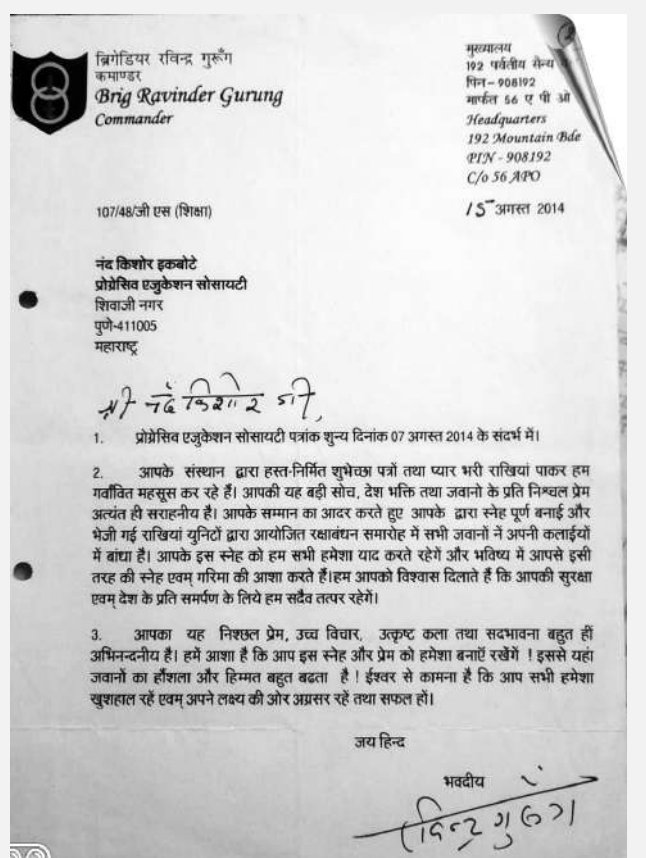 ब्रिगेडियर रविन्द्र गुरूँग
कमाण्डर
Brig Ravinder Gurung
Commander
मुख्यालय
192 पर्वतीय सैन्य
पिन– 908192
मार्फत 56 ए पी ओ
Headquarters
192 Mountain Bde
PIN - 908192
C/o 56 APO
107/48/जी एस (शिक्षा)
15 अगस्त 2014
नंद किशोर इकबोटे
प्रोग्रेसिव एजुकेशन सोसायटी
शिवाजी नगर
पुणे-411005
महाराष्ट्र
श्री नंद किशोर जी,
1. प्रोग्रेसिव एजुकेशन सोसायटी पत्रांक शुन्य दिनांक 07 अगस्त 2014 के संदर्भ में।
2. आपके संस्थान द्वारा हस्त-निर्मित शुभेच्छा पत्रों तथा प्यार भरी राखियां पाकर हम
गर्वांवित महसूस कर रहे हैं। आपकी यह बड़ी सोच, देश भक्ति तथा जवानो के प्रति निश्चल प्रेम
अत्यंत ही सराहनीय है। आपके सम्मान का आदर करते हुए आपके द्वारा स्नेह पूर्ण बनाई और
भेजी गई राखियां युनिटों द्वारा आयोजित रक्षाबंधन समारोह में सभी जवानों नें अपनी कलाईयों
में बांधा है। आपके इस स्नेह को हम सभी हमेशा याद करते रहेगें और भविष्य में आपसे इसी
तरह की स्नेह एवम् गरिमा की आशा करते हैं।हम आपको विश्वास दिलाते हैं कि आपकी सुरक्षा
एवम् देश के प्रति समर्पण के लिये हम सदैव तत्पर रहेगें।
3. आपका यह निश्छल प्रेम, उच्च विचार, उत्कृष्ट कला तथा सदभावना बहुत हीं
अभिनन्दनीय है। हमें आशा है कि आप इस स्नेह और प्रेम को हमेशा बनाऍ रखेंगें ! इससे यहां
जवानों का हौंशला और हिम्मत बहुत बढता है ! ईश्वर से कामना है कि आप सभी हमेशा
खुशहाल रहें एवम् अपने लक्ष्य की ओर अग्रसर रहें तथा सफल हों।
जय हिन्द
भवदीय
रविन्द्र गुरूंग